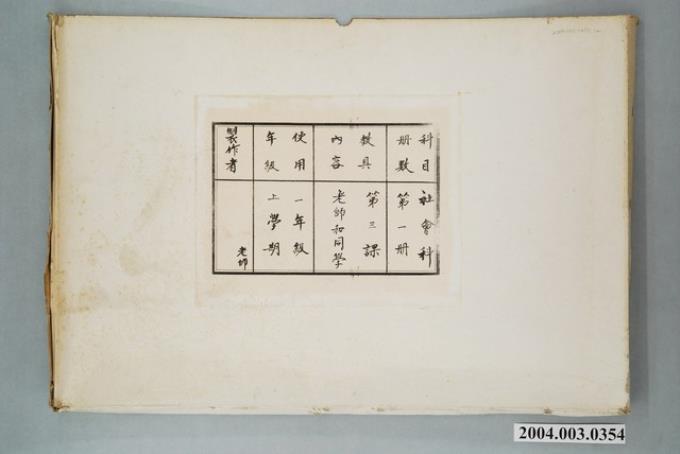 科目
冊數
教具
內容
使用
年級
製作者
社會科
第一冊
第三課
老師和同學
一年級
上學期
老師
2004.003.0354